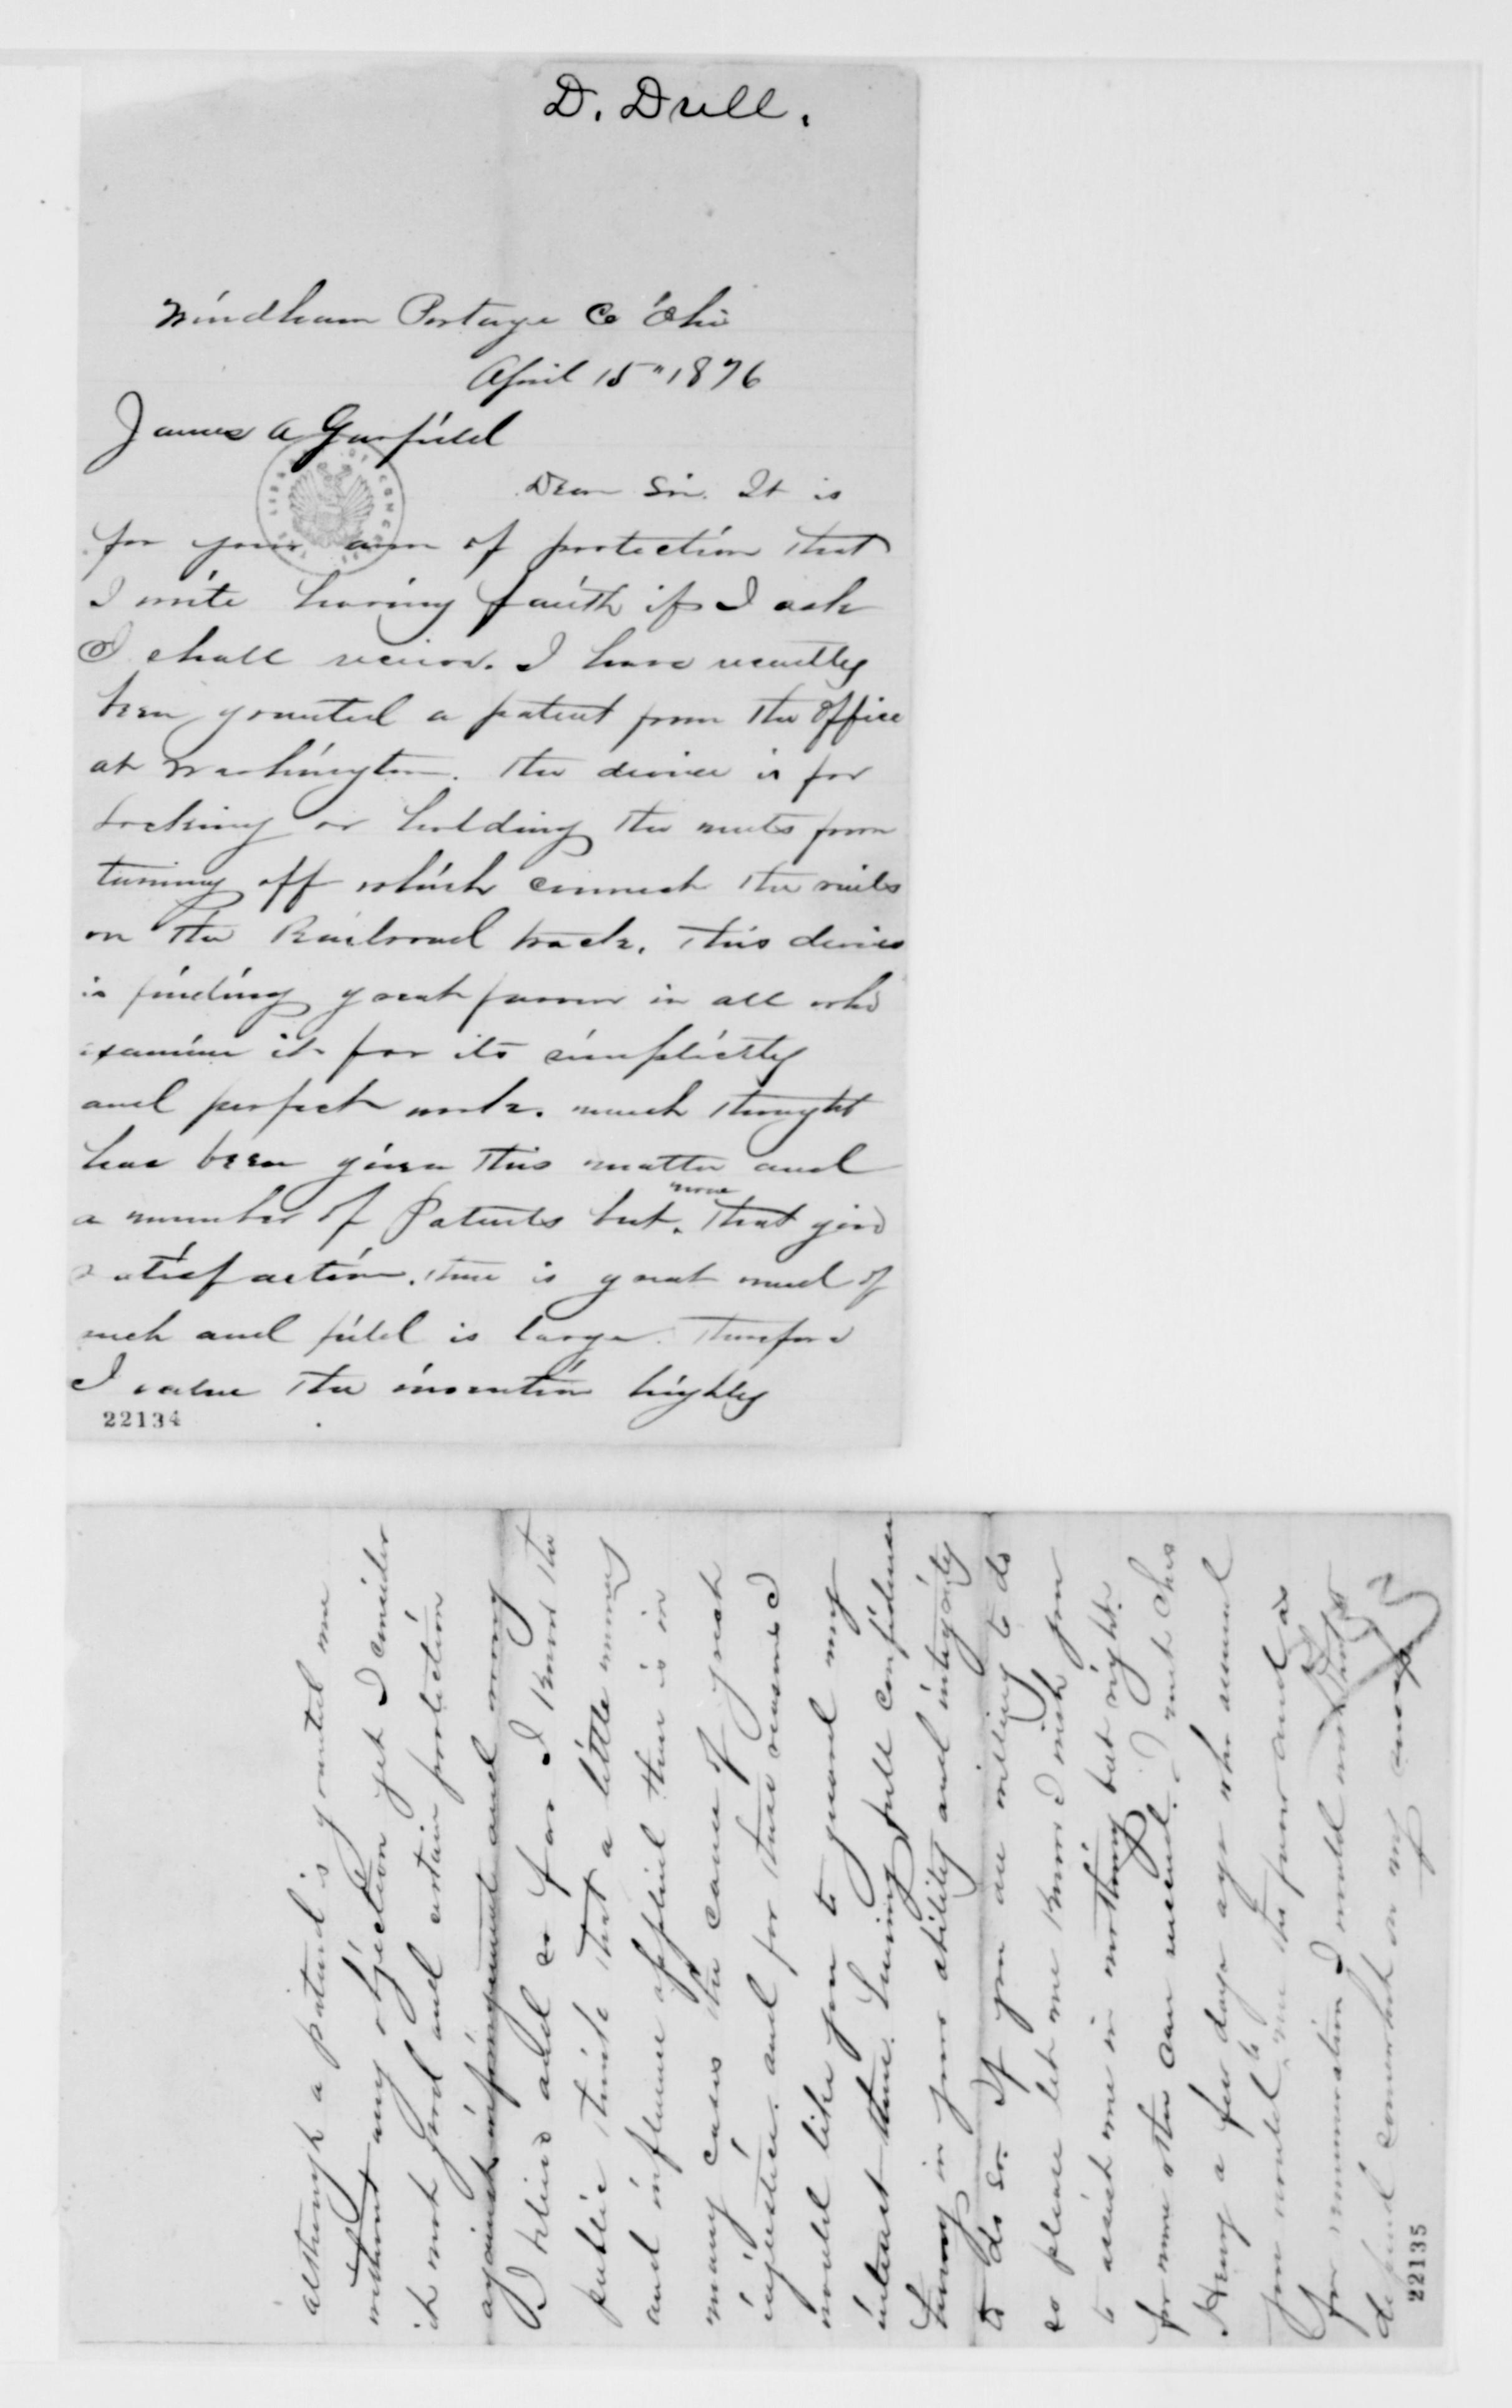 D. Drell.
Windham Portage Co Ohio
April 15" 1876
James A Garfield
Dear Sir. It is
for your arm of protection that
I write having faith if I ask
I shall recieve. I have recently
been granted a patent from the Office
at Washington. The device is for
Locking or holding the nuts from
turning off which connect the rails
on the Railroad track. This device
is finding great favor in all who
examine it for its simplicity
and perfect work. much thought
has been given this matter and
a number of Patents but none that give
satisfaction. There is great need of
such and field is large. Therefore
I value the invention highly
22134
although a patend is granted me
without any objection yet I consider
it not good and certain protection
against infringement and wrong
I believe and so far I know the
public think that a little money
and influence applied there is in
many cases the cause of great
injustice. and for these reasons I
would like you to guard my
interest there. having full confidence
in your ability and integrity
to do so. If you are willing to do
so please let me know I wish you
to assist me in nothing but right.
for none other can succeed. I met Chas
Henry a few days ago who assured
you would to me the favor and as
for remuneration I would
depend somewhat on my
22135